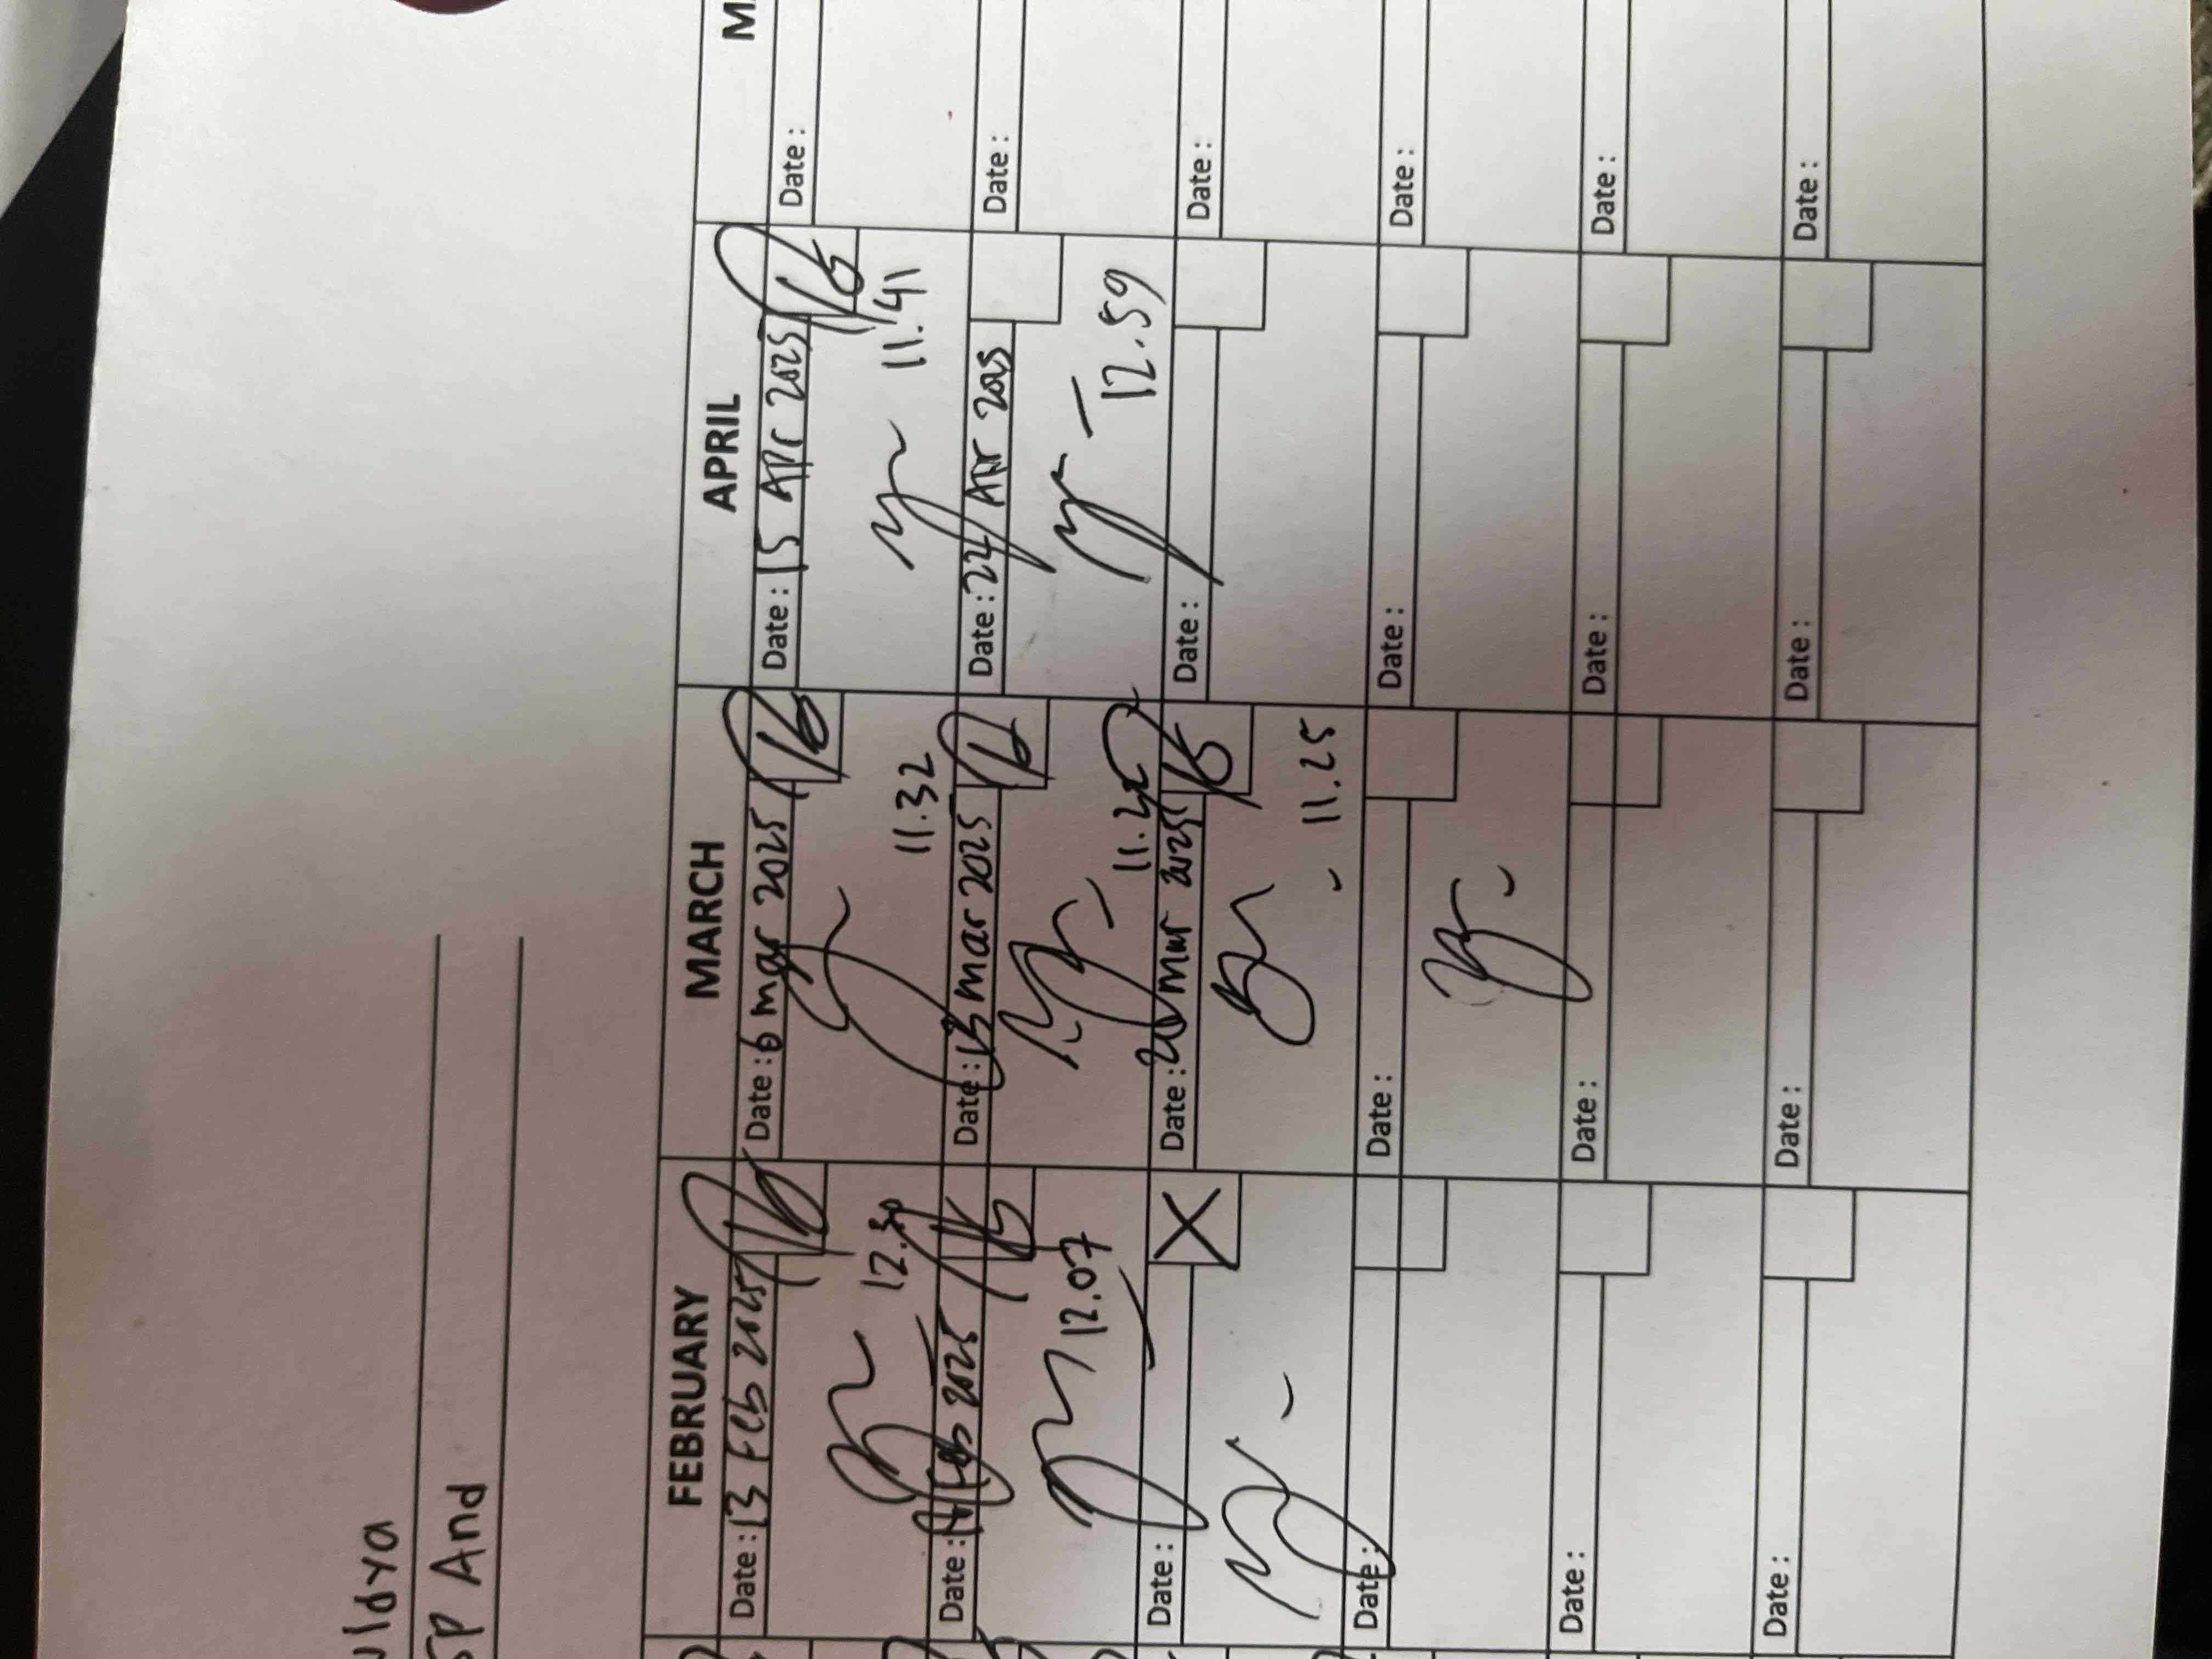 uldya
SP And
FEBRUARY MARCH APRIL
Date : 13 Feb 2025 Date : 6 mar 2025 Date : 15 Apr 2025 Date :
11.32 11.41
Date : Feb 2025 Date : 13 mar 2025 Date : 22 Apr 2025 Date :
12.07 12.59
Date : Date : 20 mar 2025 Date : Date :
11.25
Date : Date : Date : Date :
Date : Date : Date : Date :
Date : Date : Date : Date :